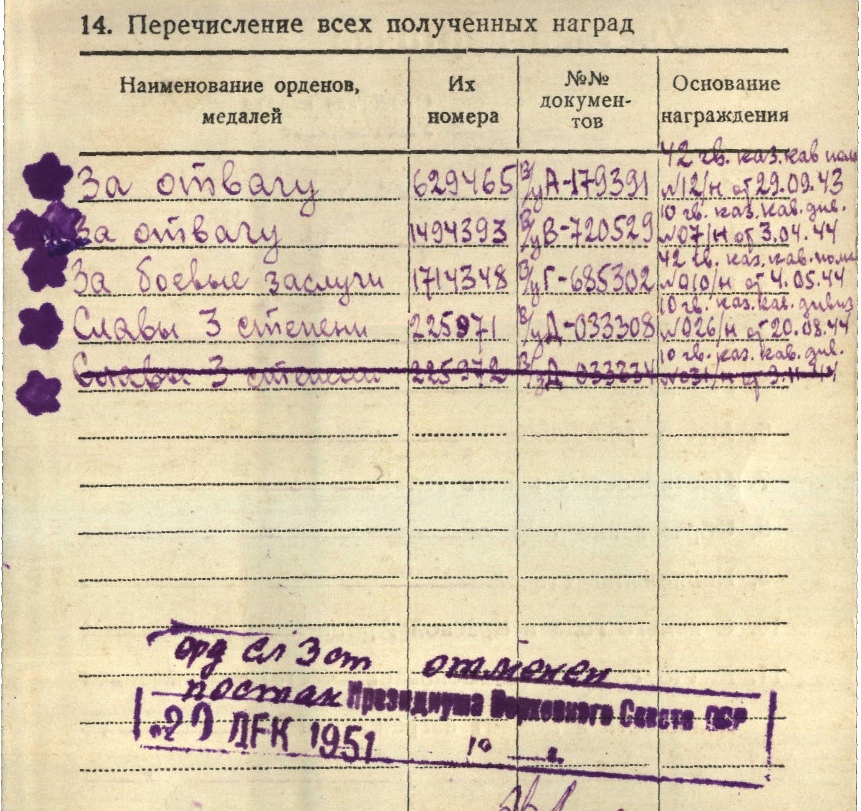 14. Перечисление всех полученных наград
Наименование орденов, медалей Их номера №№ докумен-тов Основание награждения
42 гв. каз. кав полк
За отвагу 629465 в/у А-179391 №12/н от 29.09.43
10 гв. каз. кав. див.
За отвагу 1494393 в/у В-720529 №07/н от 3.04.44
42 гв. каз. кав. полк
За боевые заслуги 1714348 в/у Г-685302 №010/н от 4.05.44
10 гв. каз. кав. дивиз
Славы 3 степени 225971 в/у Д-033308 №026/н от 20.08.44
10 гв. каз. кав. див.
Славы 3 степени 225972 Д-033234 №031/н от
орд сл 3 ст отменен
постан Президиума Верховного Совета ССР
29 ДЕК 1951 19 — г.